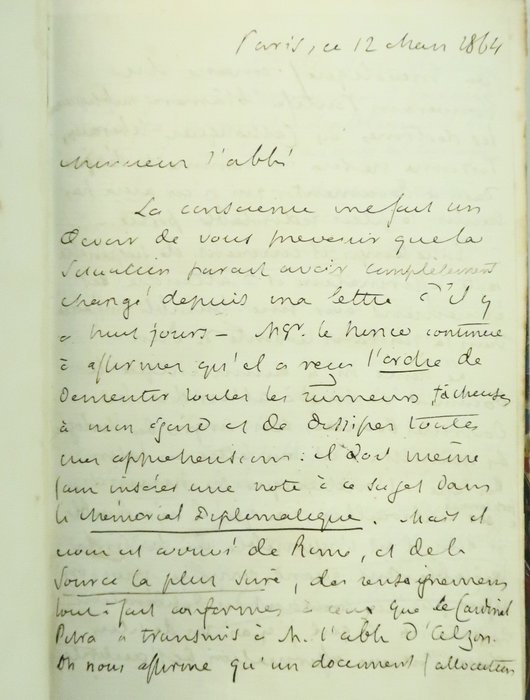 Paris, ce 12 Mars 1864
Monsieur l'abbé
La conscience me fait un
devoir de vous prévenir que la
situation parait avoir complètement
changé depuis ma lettre d'il y
a huit jours – Mgr. le Nonce continue
à affirmer qu'il a reçu l'ordre de
démentir toutes les rumeurs fâcheuses
à mon égard et de dissiper toutes
mes appréhensions : il doit même
faire insérer une note à ce sujet dans
le Mémorial Diplomatique. Mais il
nous est arrivé de Rome, et de la
source la plus sure, des renseignemens
tout à fait conformes à ceux que le Cardinal
Pitra a transmis à M. l'abbé d'Alzon.
On nous affirme qu'un document (allocution